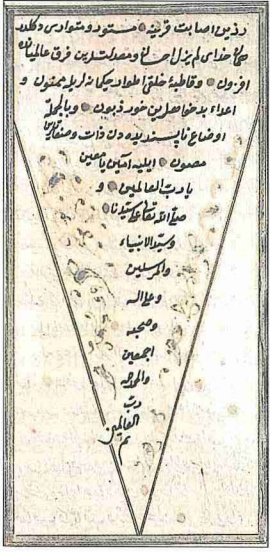 رذين اصابت قرينه مستور و متوارس دكلدر
افزون و قاطبهٔ خلقى اطوار حكيمانه لريله ممنون و
اعداء بدخواهلرين خور و زبون و بالجمله
اوضاع ناپسنديده دن ذات و صفاتلرين
مصون ايليه امين يا معين
يا رب العالمين و
صلى الله تعالى على سيدنا
وسيد الانبياء
والمرسلين
وعلى اله
وصحبه
اجمعين
والحمد لله
رب
العالمين
تم